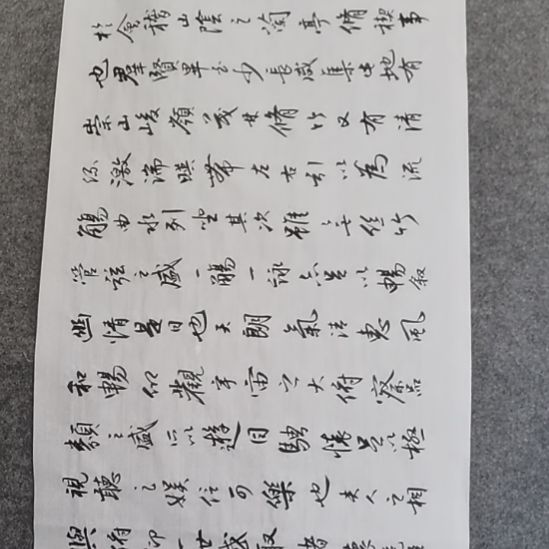 於會稽山陰之蘭亭脩禊事
也羣賢畢至少長咸集此地有
崇山峻領茂林脩竹又有清
流激湍暎帶左右引以為流
觴曲水列坐其次雖無絲竹
管弦之盛一觴一詠亦足以暢敘
幽情是日也天朗氣清惠風
和暢仰觀宇宙之大俯察品
類之盛所以遊目騁懷足以極
視聽之娛信可樂也夫人之相
與俯仰一世或取